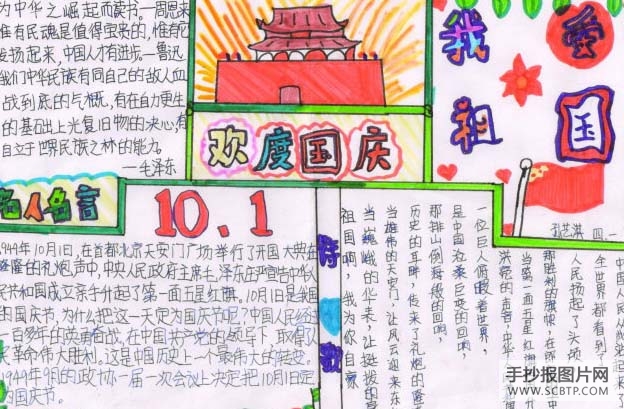 为中华之崛起而读书。—周恩来
惟有民魂是值得宝贵的,惟有它
发扬起来,中国人才有进步。—鲁迅
我们中华民族有同自己的敌人血
战到底的气慨,有在自力更生
的基础上光复旧物的决心,有
自立于世界民族之林的能力。
—毛泽东
名人名言
欢度国庆
我爱祖国
10.1
1949年10月1日,在首都北京天安门广场举行了开国大典,在
隆隆的礼炮声中,中央人民政府主席毛泽东庄严宣告中华
民共和国成立亲手升起了第一面五星红旗。10月1日是我
的国庆节。为什么把这一天定为国庆节呢?中国人民经
一百多年的英勇奋战,在中国共产党的领导下,取得
革命伟大胜利。这是中国历史上一个最伟大的转变。
1949年9月的政协一届一次会议上决定把10月1日定
国庆节。
诗歌
四.一
中国人民从此站起来了
全世界都看到了
人民扬起了头颅
那胜利的旗帜,在
当第一面五星红
洪亮的声音,中华
一位巨人俯瞰着世界,
是中国沧桑巨变的回响,
那排山倒海般的回响,
历史的耳畔,传来了礼炮的隆
当雄伟的天安门,让风云迎来东
当巍峨的华表,让挺拔的
祖国啊,我为你自豪
手抄报图片网
WWW.SCBTP.COM